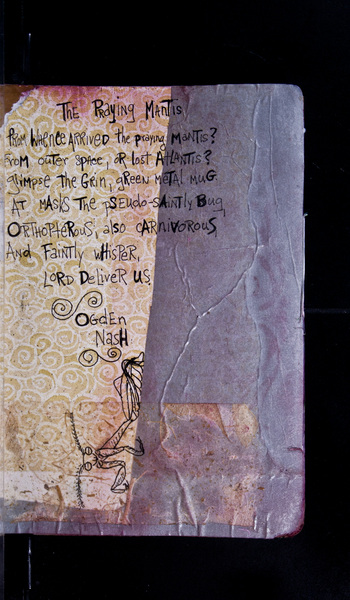 The Praying Mantis
From whence arrived the praying mantis?
From outer space, or lost Atlantis?
glimpse the Grin, green metal mug
at masks the pseudo-saintly bug
Orthopterous, also carnivorous,
And faintly whisper,
Lord deliver us.
Ogden
Nash